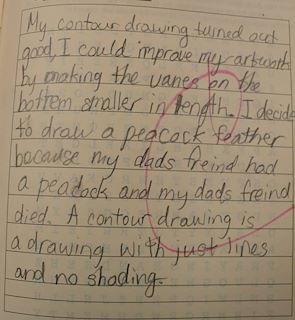 My contour drawing turned out
good, I could improve my artwork
by making the vanes on the
bottem smaller in length. I decide
to draw a peacock feather
bocause my dads freind had
a peacock and my dads freind
died. A contour drawing is
a drawing with just lines
and no shading.